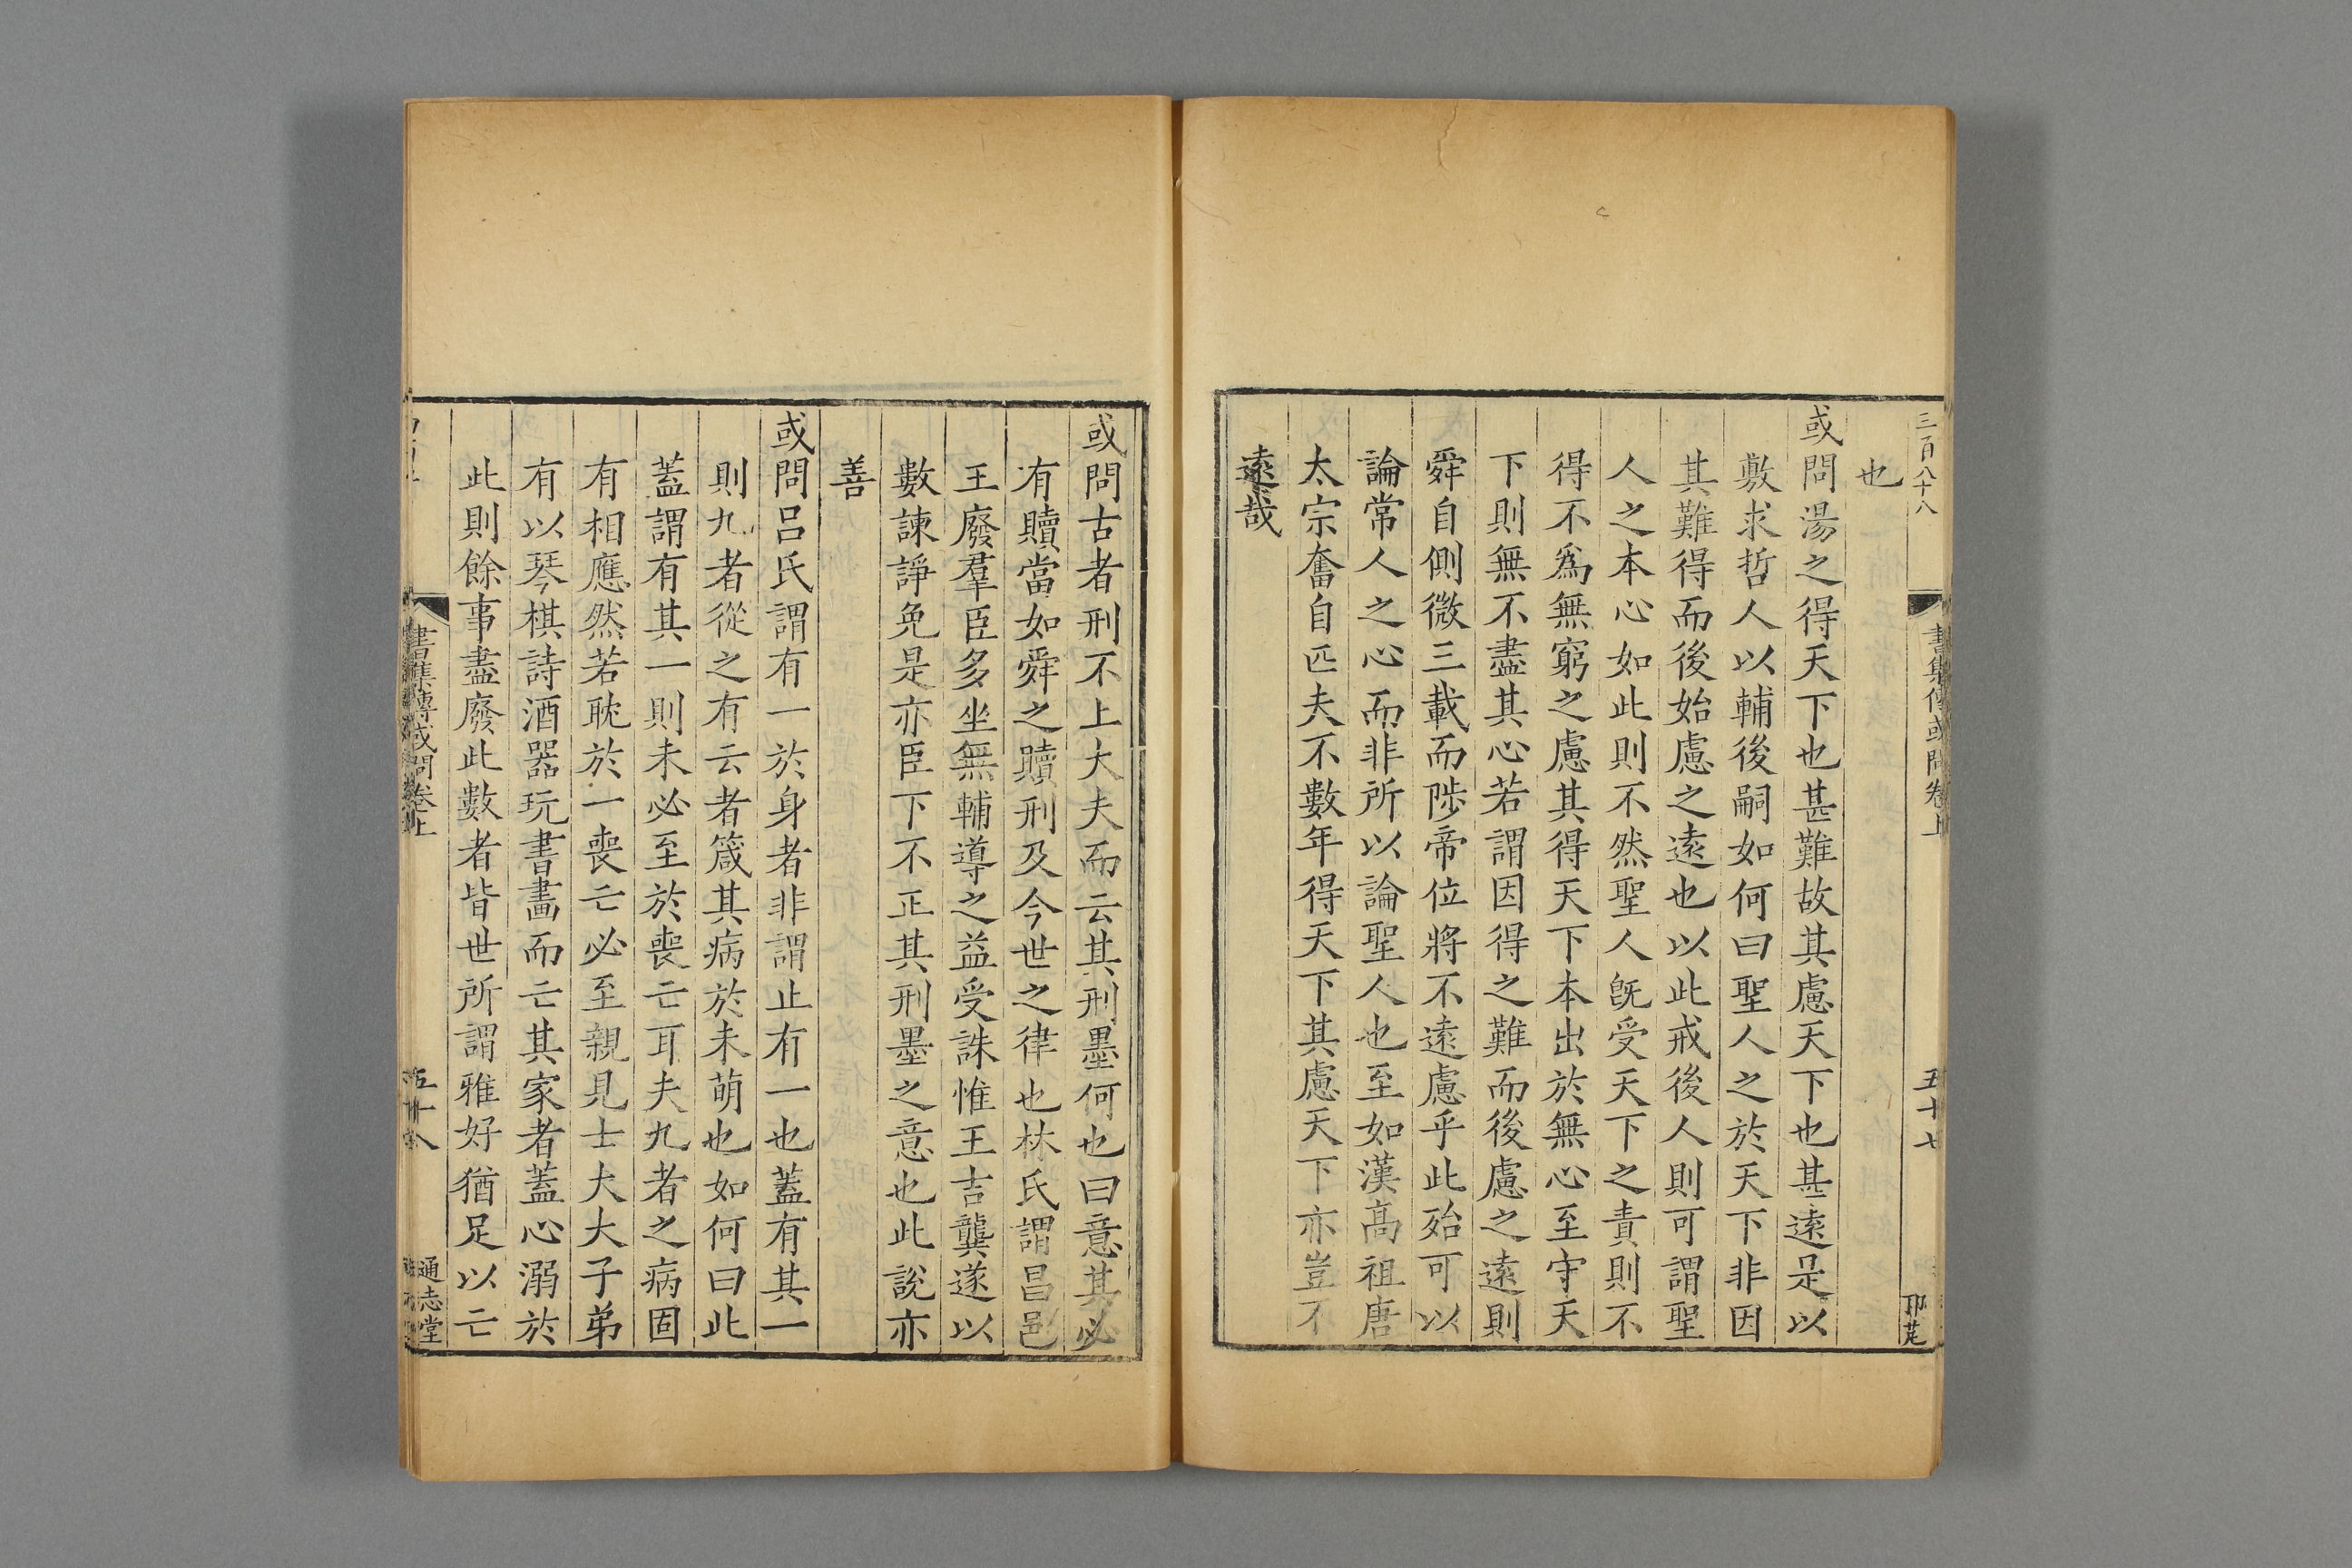 三百八十八
書集傳或問卷上
五十七
也
或問湯之得天下也甚難故其慮天下也甚遠是以
敷求哲人以輔後嗣如何曰聖人之於天下非因
其難得而後始慮之遠也以此戒後人則可謂聖
人之本心如此則不然聖人旣受天下之責則不
得不爲無窮之慮其得天下本出於無心至守天
下則無不盡其心若謂因得之難而後慮之遠則
舜自側微三載而陟帝位將不遠慮乎此殆可以
論常人之心而非所以論聖人也至如漢髙祖唐
太宗奮自匹夫不數年得天下其慮天下亦豈不
遠哉
或問古者刑不上大夫而云其刑墨何也曰意其必
有贖當如舜之贖刑及今世之律也林氏謂昌邑
王廢羣臣多坐無輔導之益受誅惟王吉龔遂以
數諫諍免是亦臣下不正其刑墨之意也此說亦
善
或問呂氏謂有一於身者非謂止有一也蓋有其一
則九者從之有云者箴其病於未萌也如何曰此
蓋謂有其一則未必至於喪亡耳夫九者之病固
有相應然若耽於一喪亡必至親見士夫大子弟
有以琴棋詩酒器玩書畵而亡其家者蓋心溺於
此則餘事盡廢此數者皆世所謂雅好猶足以亡
書集傳或問卷上
五十八
通志堂